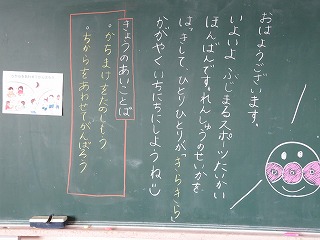 おはようございます。
いよいよ、ふじまるスポーツたいかい
ほんばんです。れんしゅうのせいかを
はっきして、ひとりひとりが「きらきら」
かがやくいちにちにしようね
きょうのあいことば
・かちまけをたのしもう
・ちからをあわせてがんばろう